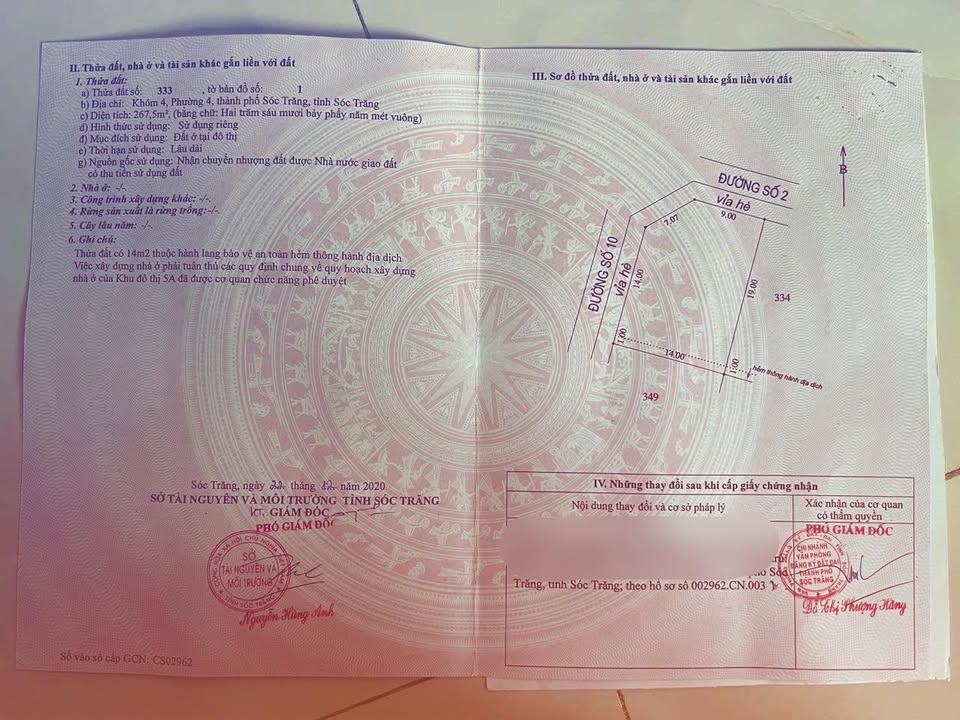 II. Thửa đất, nhà ở và tài sản khác gắn liền với đất
1. Thửa đất:
a) Thửa đất số: 333 , tờ bản đồ số: 1
b) Địa chỉ: Khóm 4, Phường 4, thành phố Sóc Trăng, tỉnh Sóc Trăng
c) Diện tích: 267,5m², (bằng chữ: Hai trăm sáu mươi bảy phẩy năm mét vuông)
d) Hình thức sử dụng: Sử dụng riêng
đ) Mục đích sử dụng: Đất ở tại đô thị
e) Thời hạn sử dụng: Lâu dài
g) Nguồn gốc sử dụng: Nhận chuyển nhượng đất được Nhà nước giao đất
có thu tiền sử dụng đất
2. Nhà ở: -/-
3. Công trình xây dựng khác: -/-
4. Rừng sản xuất là rừng trồng: -/-
5. Cây lâu năm: -/-
6. Ghi chú:
Thửa đất có 14m2 thuộc hành lang bảo vệ an toàn hẻm thông hành địa dịch
Việc xây dựng nhà ở phải tuân thủ các quy định chung về quy hoạch xây dựng
nhà ở của Khu đô thị 5A đã được cơ quan chức năng phê duyệt
Sóc Trăng, ngày 22 tháng 12 năm 2020
SỞ TÀI NGUYÊN VÀ MÔI TRƯỜNG TỈNH SÓC TRĂNG
KT. GIÁM ĐỐC
PHÓ GIÁM ĐỐC
SỞ
TÀI NGUYÊN VÀ
MÔI TRƯỜNG
TỈNH SÓC TRĂNG
Nguyễn Hùng Anh
Số vào sổ cấp GCN: CS02962
III. Sơ đồ thửa đất, nhà ở và tài sản khác gắn liền với đất
B
ĐƯỜNG SỐ 2
vỉa hè
9.00
7.07
ĐƯỜNG SỐ 10
vỉa hè
14.00
19.00
334
1.00
14.00
1.00
hẻm thông hành địa dịch
349
IV. Những thay đổi sau khi cấp giấy chứng nhận
Nội dung thay đổi và cơ sở pháp lý
Xác nhận của cơ quan
có thẩm quyền
Sóc
Trăng, tỉnh Sóc Trăng; theo hồ sơ số 002962.CN.003
PHÓ GIÁM ĐỐC
CHI NHÁNH
VĂN PHÒNG
ĐĂNG KÝ ĐẤT ĐAI
THÀNH PHỐ
SÓC TRĂNG
Đỗ Thị Phượng Hằng